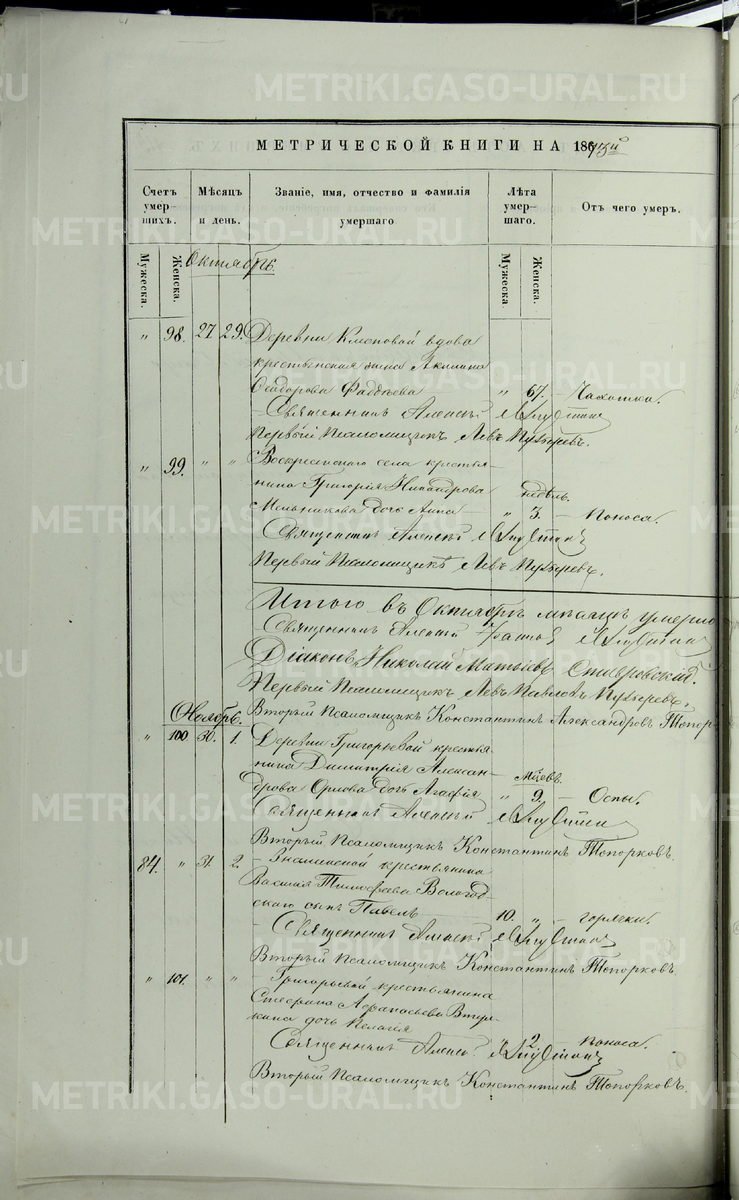 МЕТРИЧЕСКОЙ КНИГИ НА 1873й
Счетъ умершихъ. Мѣсяцъ и день. Званіе, имя, отчество и фамилія умершаго Лѣта умершаго. Отъ чего умеръ.
Мужеска. Женска. Мужеска Женска.
Октябрь.
" 98. 27 29. Деревни Клеповой вдова
крестьянская жена Акилина
Ѳеодорова Фаддѣева " 67. – Чахотка.
– Священникъ Алексѣй
Первый Псаломщикъ Левъ Пузыревъ.
" 99. " " Воскресенского села крестья-
нина Григорія Никандрова недѣль.
Мельникова дочь Анна " 3. – Поноса.
Священникъ Алексѣй
Первый Псаломщикъ Левъ Пузыревъ.
Итого въ Октябрѣ мѣсяцѣ умерло
Священникъ Алексѣй
Діаконъ Николай Матвѣевъ Ставровскій.
Первый Псаломщикъ Левъ Павловъ Пузыревъ.
Ноябрь. Второй Псаломщикъ Константинъ Александровъ Топор
" 100 30. 1. Деревни Григорьевой крестья-
нина Димитрія Алексан- Мѣсяцевъ.
дрова Орлова дочь Агафія " 9. – Оспы.
Священникъ Алексѣй
Вторый Псаломщикъ Константинъ Топорковъ.
84. " 31. 2. – Знаменской крестьянина
Василія Тимофеева Вологод-
скаго сынъ Павелъ 10. " – горячки.
– Священникъ Алексѣй
Вторый Псаломщикъ Константинъ Топорковъ.
" 101. " " – Григорьевой крестьянина
Аѳанасьева
дочь Пелагія " 2 Поноса.
Священникъ Алексѣй
Вторый Псаломщикъ Константинъ Топорковъ.
METRIKI.GASO-URAL.RU